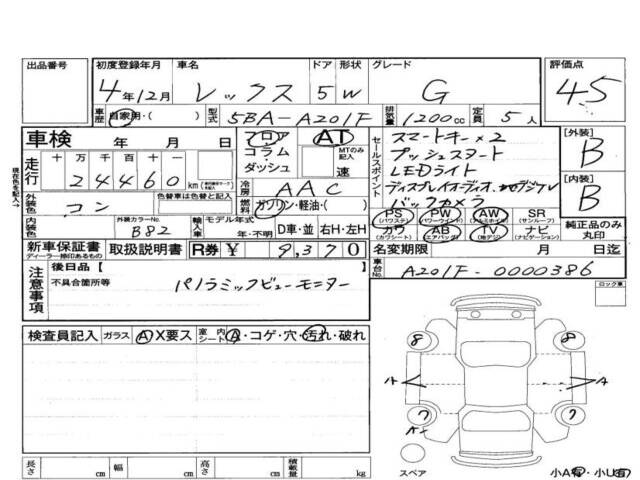 出品番号 初度登録年月 車名 ドア 形状 グレード 評価点
4年12月 レックス 5 W G 4.5
車歴 自家用・( ) 型式 5BA-A201F 排気量 1200cc 定員 5人
車検 年 月 日 フロア コラム・ダッシュ AT MTのみ記入 速
走行 十 万 千 百 十 一
24460 km
冷房 AAC
燃料 ガソリン・軽油・( )
セールスポイント
スマートキー×2
プッシュスタート
LEDライト
ディスプレイオーディオ、地デジTV
バックカメラ
[外装] B
[内装] B
現在色を記入→
外装色 コン 色替車は色替と記入
内装色 外装カラーNo. B82 輸入車 モデル年式 年・不明 D車・並 右H・左H
PS (パワステ) PW (パワーウィンド) AW (アルミホイル) SR (サンルーフ)
カワ (カワシート) AB (エアバッグ) TV (地デジ) ナビ (ナビゲーション)
純正品のみ丸印
新車保証書 ディーラー捺印あるもの 取扱説明書 R券 ¥ 9,370
名変期限 月 日迄
車台No. A201F-0000386
注意事項 後日品 ( )
不具合箇所等 パノラミックビューモニター
ロック車
検査員記入 ガラス A X要ス 室内シート A・コゲ・穴・汚れ・破れ
8 8
A A
7 7
スペア
小A有・小U有
長さ cm 幅 cm 高さ cm 積載量 kg